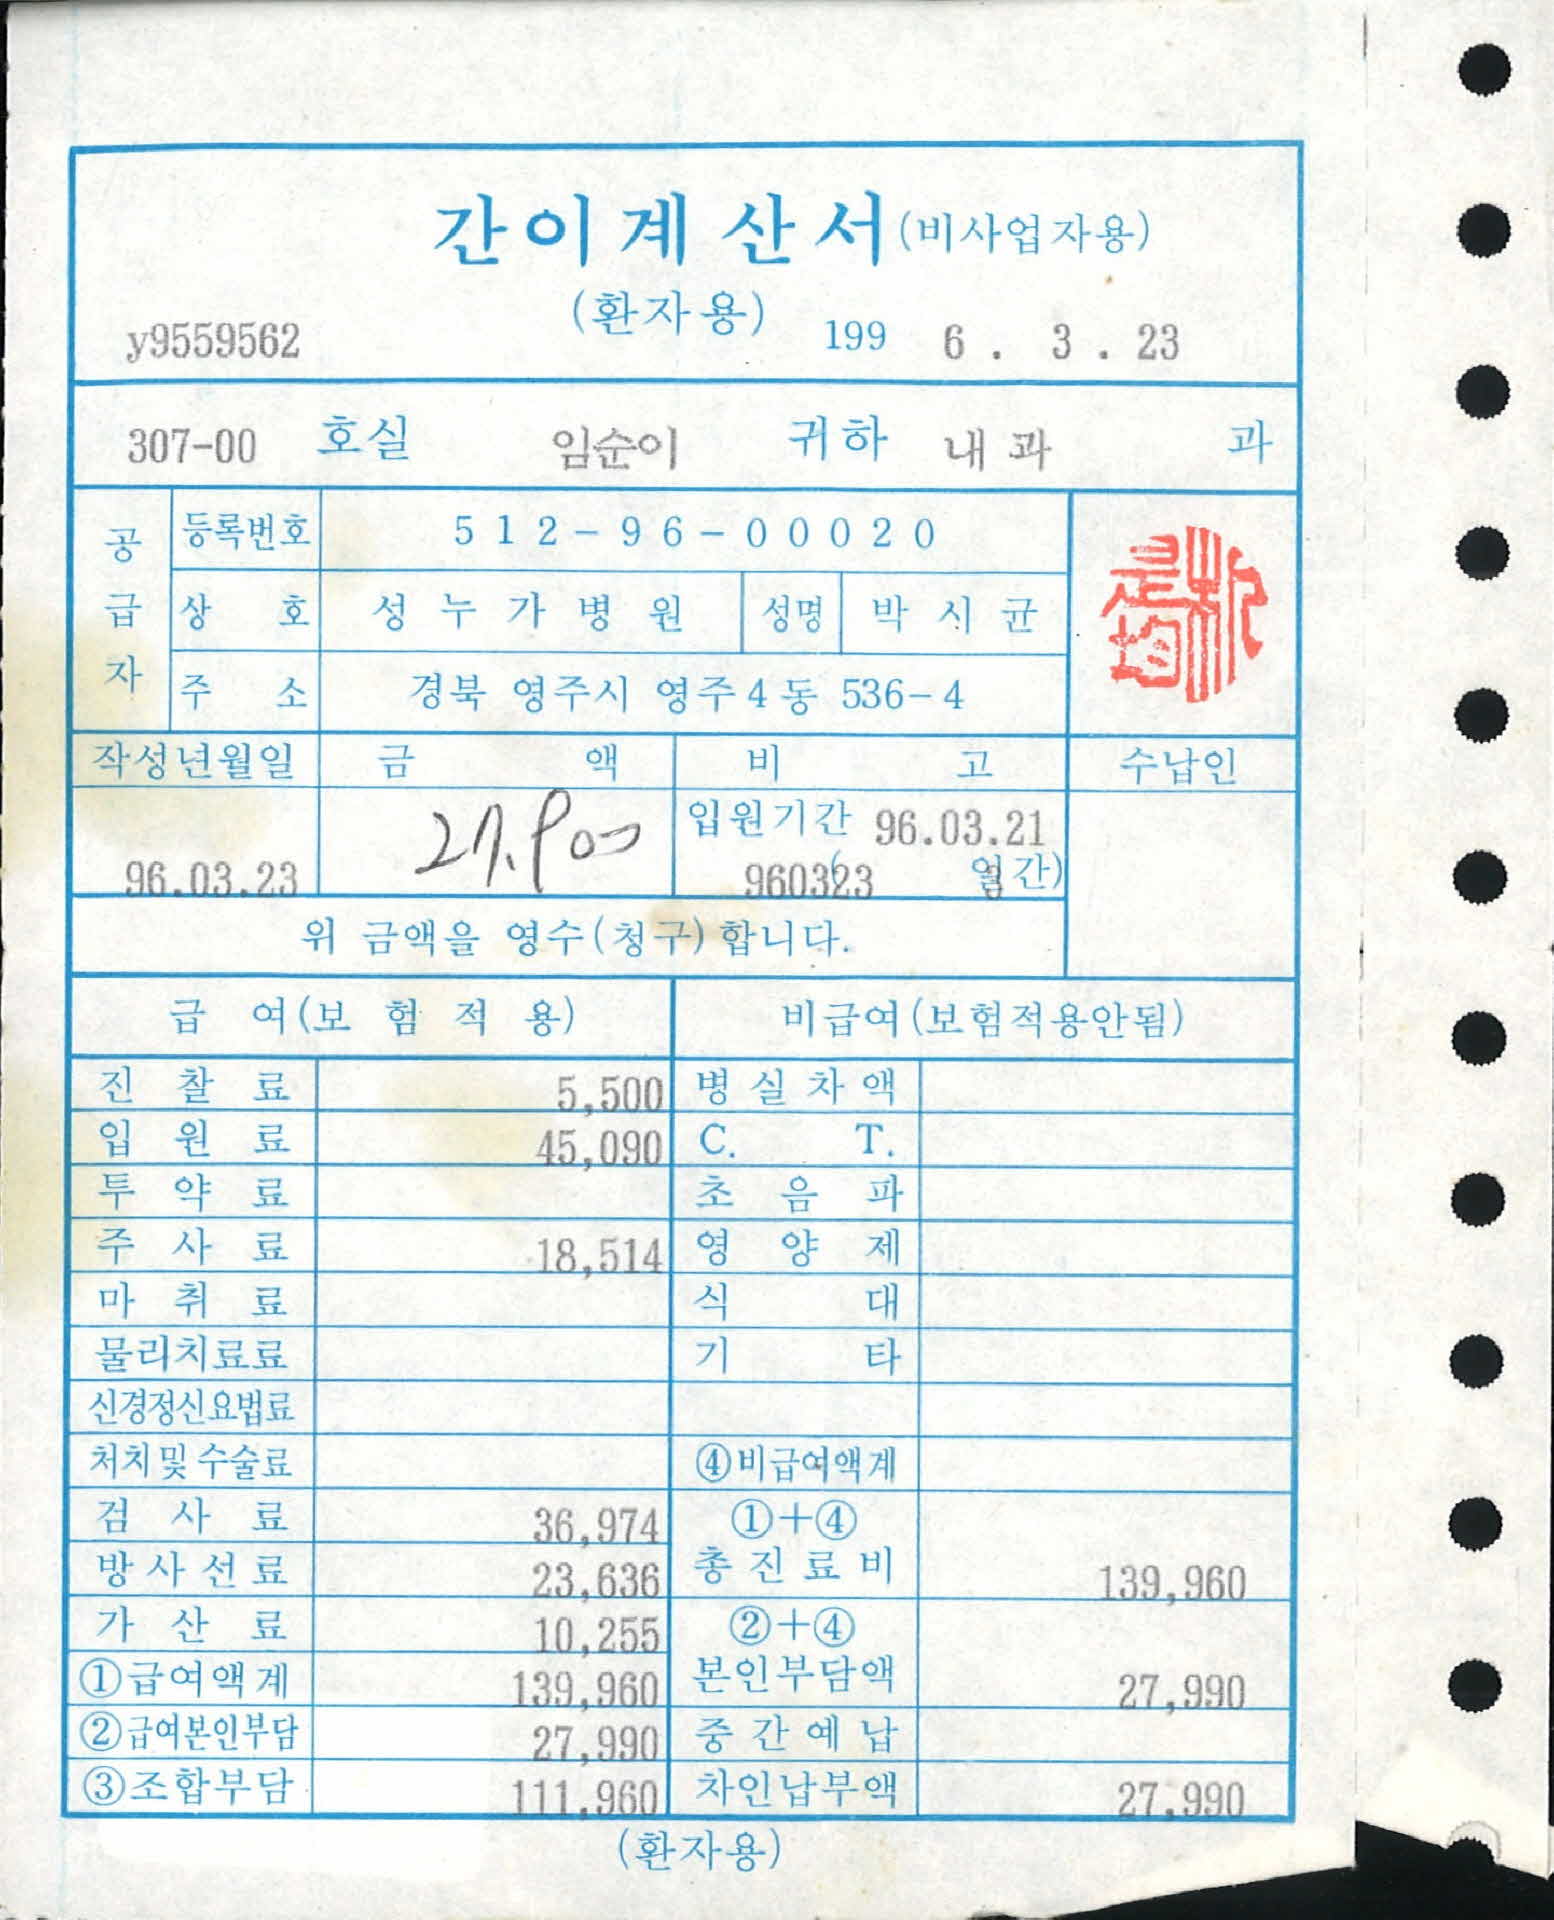 간이계산서(비사업자용)
(환자용)
y9559562 199 6 . 3 . 23
307-00 호실 임순이 귀하 내과 과
공급자
등록번호 512-96-00020
상호 성누가병원 성명 박시균
주소 경북 영주시 영주4동 536-4
작성년월일 금액 비고 수납인
96.03.23 27,900 입원기간 96.03.21
960323 ( 일간)
위 금액을 영수(청구)합니다.
급여(보험적용) 비급여(보험적용안됨)
진찰료 5,500 병실차액
입원료 45,090 C. T.
투약료 초음파
주사료 18,514 영양제
마취료 식대
물리치료료 기타
신경정신요법료
처치및수술료 ④비급여액계
검사료 36,974 ①+④
방사선료 23,636 총진료비 139,960
가산료 10,255 ②+④
①급여액계 139,960 본인부담액 27,990
②급여본인부담 27,990 중간예납
③조합부담 111,960 차인납부액 27,990
(환자용)